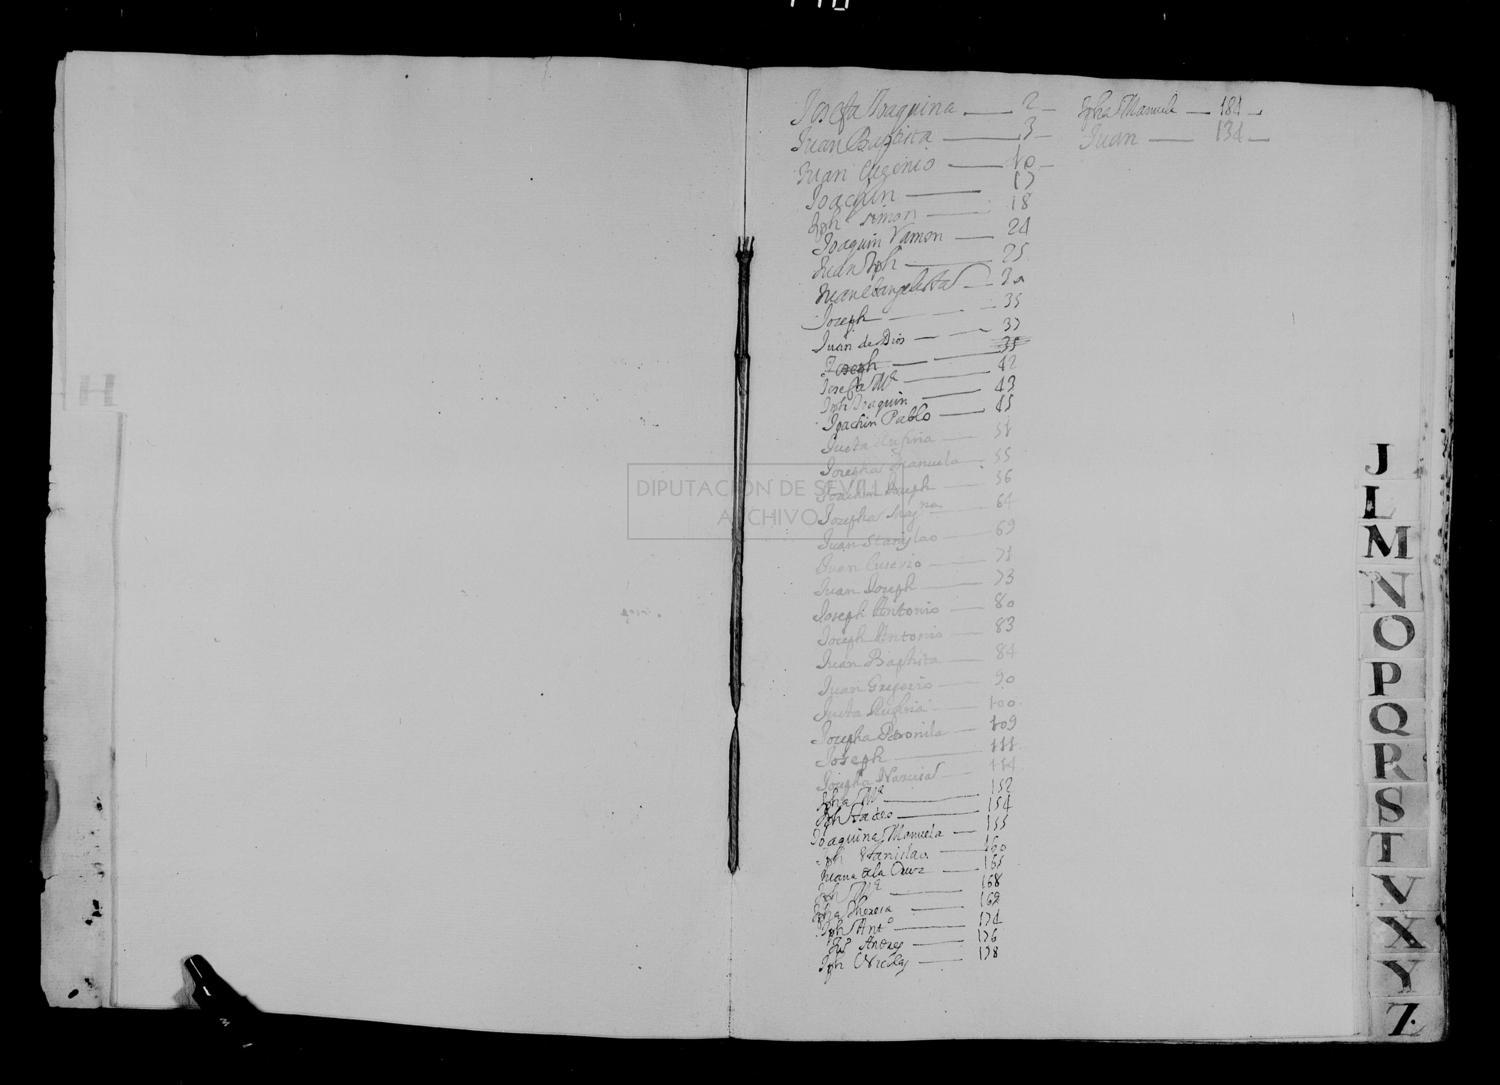 Josefa Joaquina — 2 —
Juan Baptista — 3 —
Juan Eugenio — 10 —
Joachin — 17
Jph Simon — 18
Joaquin Ramon — 24
Juan Jph — 25
Juan Evangelista —
Joseph — 35
Juan de Dios — 37
Joseph — 35
Josefa Mª — 42
Jph Joaquin — 43
Joachin Pablo — 45
Justa Rufina — 51
Josepha Manuela — 55
Joachin Joseph — 56
Josepha — 64
Juan Stanislao — 69
Juan — 71
Juan Joseph — 73
Joseph Antonio — 80
Joseph Antonio — 83
Juan Baptista — 84
Juan Gregorio — 90
Justa Rufina — 100
Josepha Petronila — 109
Joseph — 111
Josepha Narcisa — 114
Jpha Mª — 152
Jph Tadeo — 154
Joaquina Manuela — 155
Jph Stanislao — 160
Juana de la Cruz — 165
Jph Mª — 168
Jpha Theresa — 169
Jph Antº — 174
Andres — 176
Jph Nicolas — 178
Jpha Manuela — 184 —
Juan — 134 —
H
J
L
M
N
O
P
Q
R
S
T
V
X
Y
Z.
DIPUTACIÓN DE SEVILLA
ARCHIVO